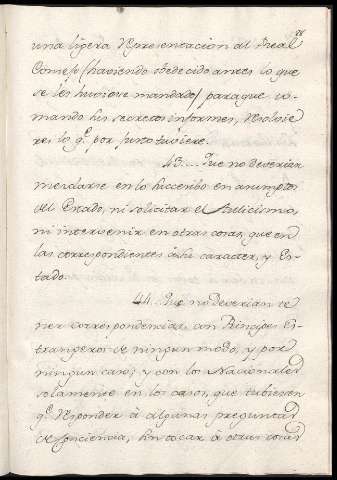 una ligera Representacion al Real
Consejo (haviendo obedecido antes lo que
se les huviere mandado) para que to-
mando sus secretos informes, resolvie
re lo q.e por justo tubiere.
43.... Que no deverian
mezclarse en lo succesibo en asumptos
del Estado, ni solicitar el Aulicismo,
ni intervenir en otras cosas, que en
las correspondientes à su caracter, y Es-
tado.
44. Que no deverian te
ner correspondencias con Principes Es-
trangeros de ningun modo, y por
ningun caso; y con los Nacionales
solamente en los casos, que tubiesen
q.e responder à algunas preguntas
de conciencia, sin tocar à otras cosas